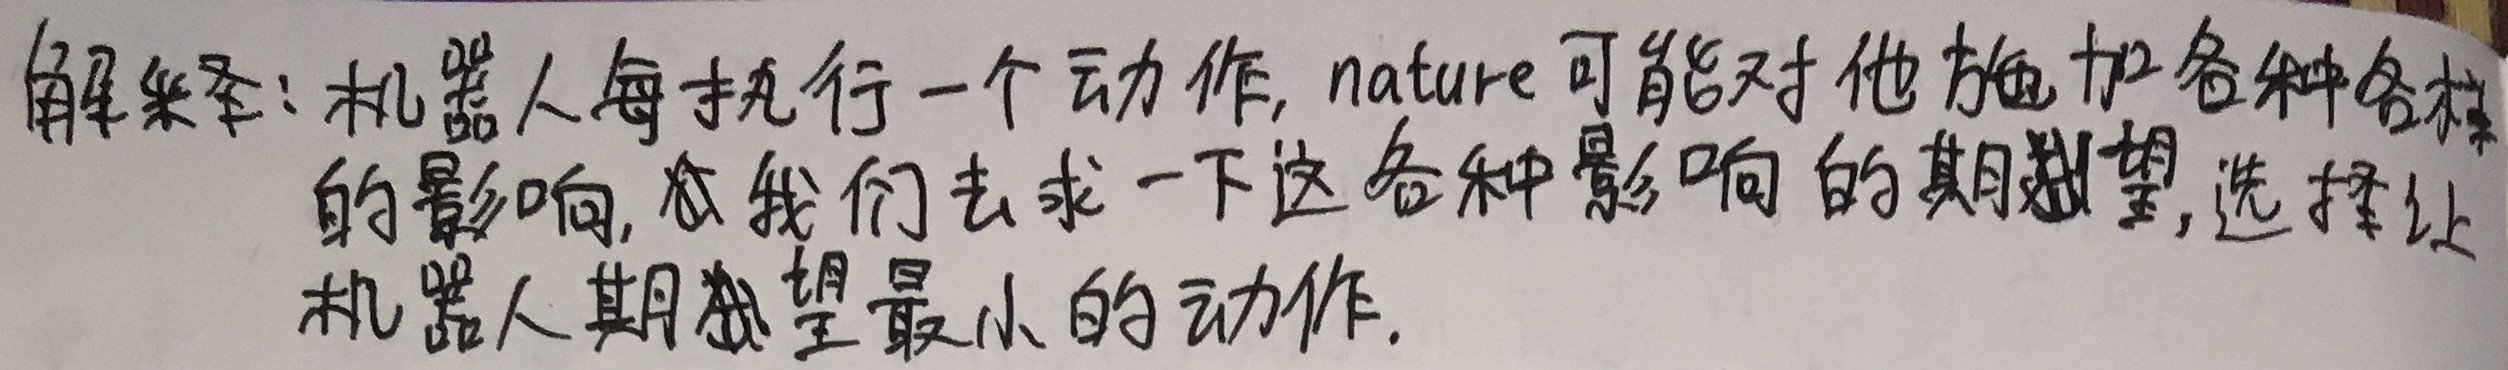 解释:机器人每执行一个动作,nature可能对他施加各种各样
的影响,我们去求一下这各种影响的期望,选择让
机器人期望最小的动作.